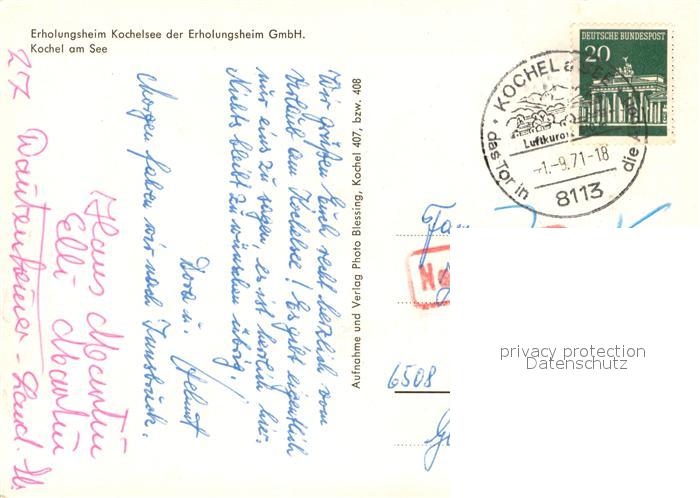 Erholungsheim Kochelsee der Erholungsheim GmbH.
Kochel am See
Wir grüßen Euch recht herzlich vom
Urlaub am Kochelsee! Es gibt eigentlich
nur eins zu sagen, es ist herrlich hier.
Nichts bleibt zu wünschen übrig.
Dora u. Helmut
Morgen fahren wir nach Innsbruck.
Hans Martin
Elli Martin
27
Aufnahme und Verlag Photo Blessing, Kochel 407, bzw. 408
DEUTSCHE BUNDESPOST
20
KOCHEL a. SEE
Luftkurort
-1.-9.71-18
8113
das Tor in die
6508
privacy protection
Datenschutz